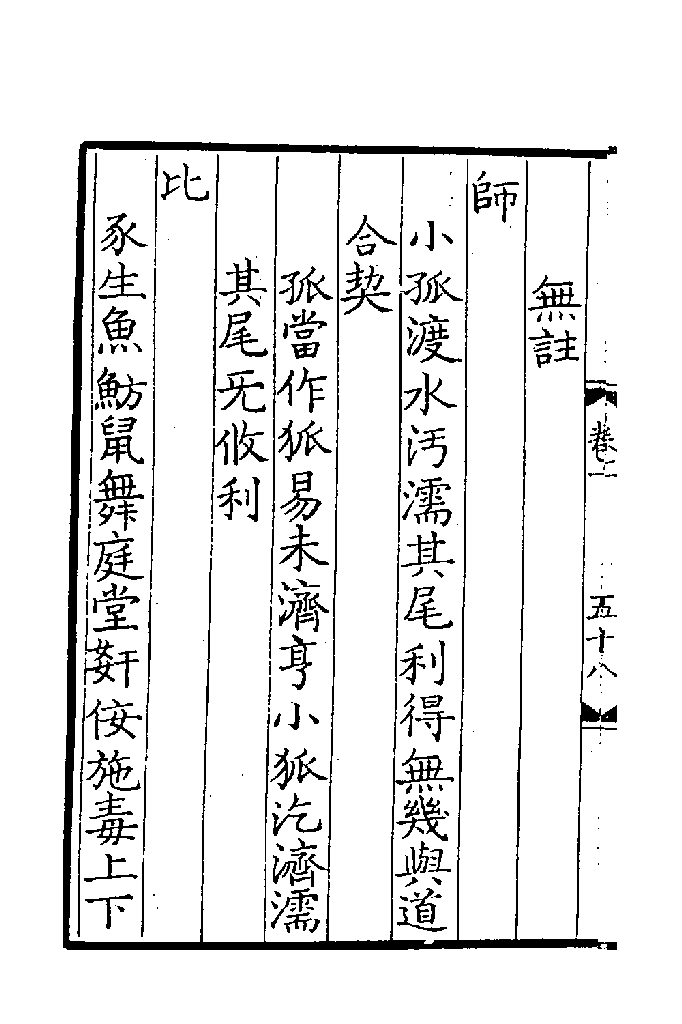 卷二
五十八
無註
師
小孤渡水汚濡其尾利得無幾與道
合契
孤當作狐易未濟亨小狐汔濟濡
其尾旡攸利
比
豕生魚魴鼠舞庭堂姧佞施毒上下